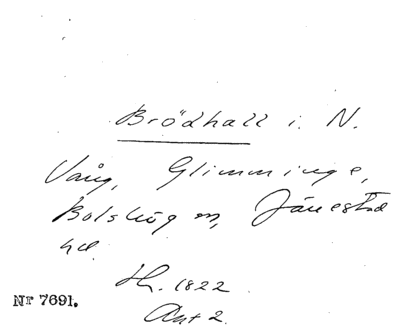 Brödhall i. N.
Vång, Glimminge,
Bolshög m, Jänestad
hd.
Hh. 1822
Ant 2.
Nr 7691.